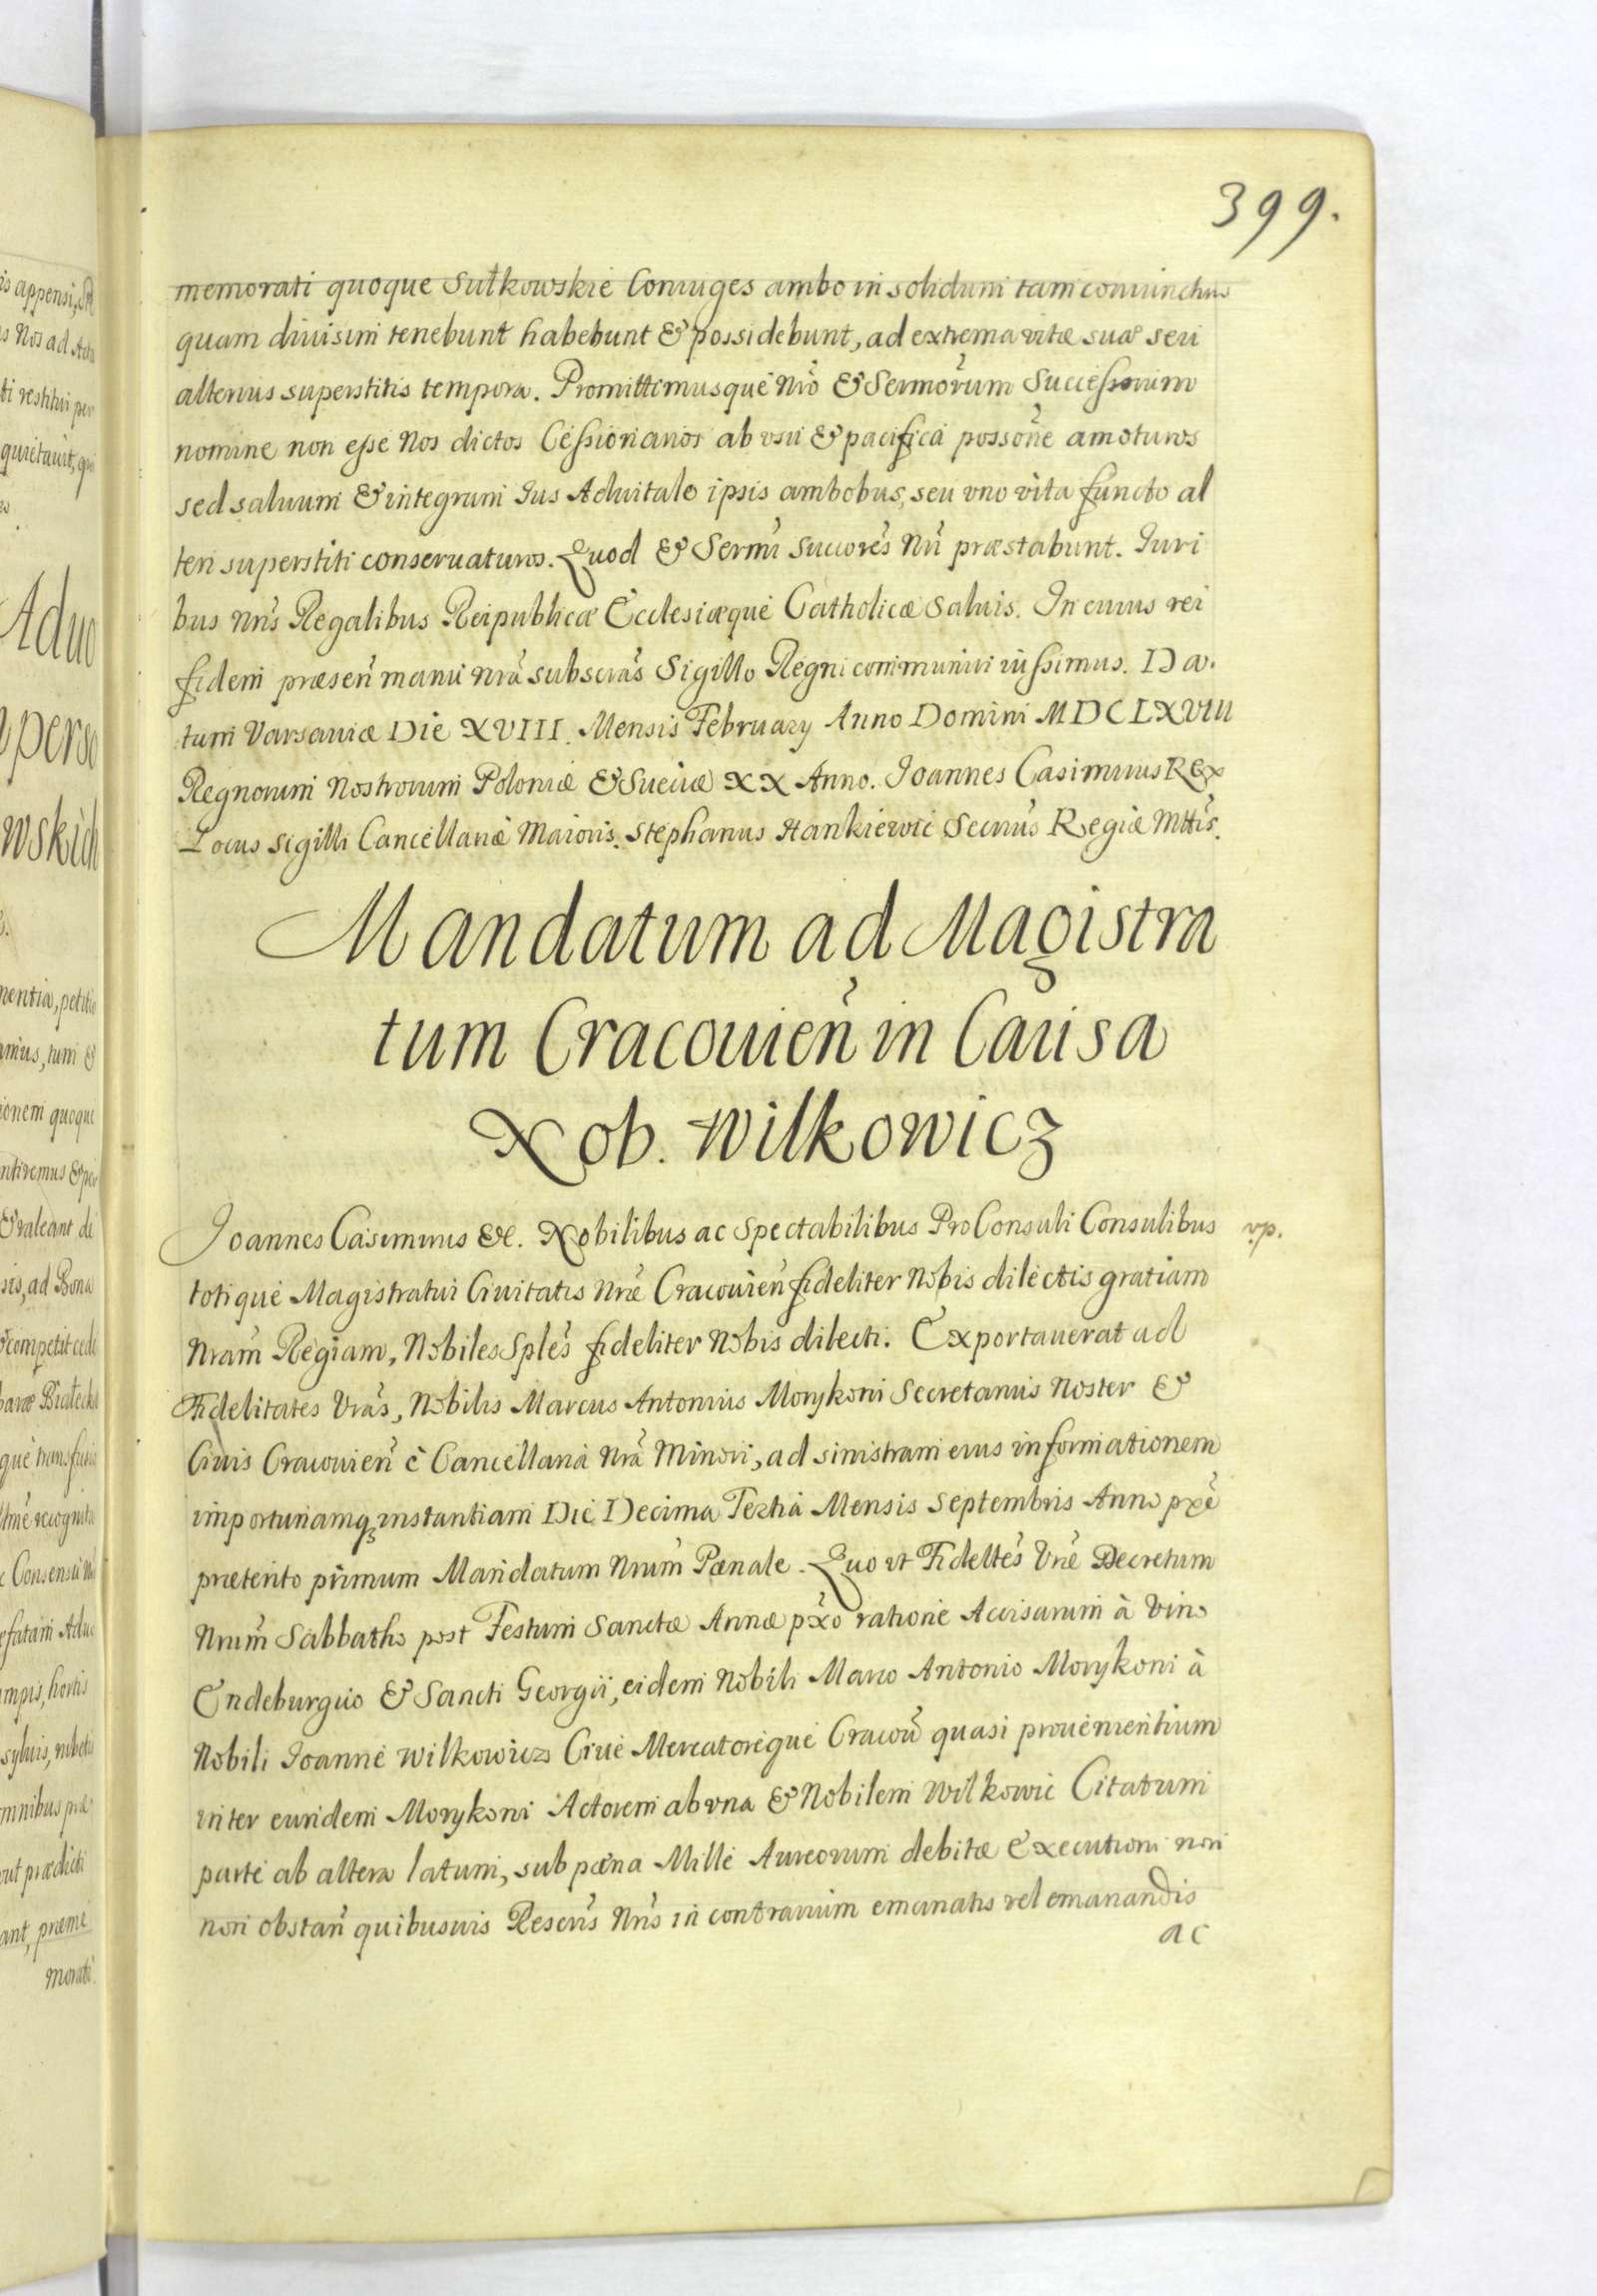 399.
memorati quoque Sułkowskie Coniuges ambo in solidum tam coniunctim
quam diuisim tenebunt habebunt & possidebunt, ad extrema vitæ suæ seu
alterius superstitis tempora. Promittimusque Nrõ & Sermõrum Successorum
nomine non esse Nos dictos Cessionarios ab vsu & pacifica possõne amoturos
sed saluum & integrum Ius Aduitale ipsis ambobus, seu vno vita functo al
teri superstiti conseruaturos. Quod & Sermi Succores Nri præstabunt. Iuri
bus Nris Regalibus Reipublicæ Ecclesiæque Catholicæ Saluis. In cuius rei
fidem præsen manu Nrã subscras Sigillo Regni communiri iussimus. Da.
tum Varsauiæ Die XVIII. Mensis February Anno Domini MDCLXVIII
Regnorum Nostrorum Poloniæ & Sueciæ XX Anno. Joannes Casimirus Rex
Locus Sigilli Cancellariæ Maioris. Stephanus Hankiewic Secrius Regiæ Mttis.
Mandatum ad Magistra
tum Cracouien in Causa
Nob. Wilkowicz
Joannes Casimirus &c. Nobilibus ac Spectabilibus ProConsuli Consulibus vp.
totique Magistratui Ciuitatis Nræ Cracouien fideliter Nobis dilectis gratiam
Nram Regiam, Nobiles Sples fideliter Nobis dilecti. Exportauerat ad
Fidelitates Vras, Nobilis Marcus Antonius Morykoni Secretarius Noster &
Ciuis Cracouien è Cancellaria Nra Minori, ad sinistram eius informationem
importunamq instantiam Die Decima Tertia Mensis Septembris Anno pxe
præterito primum Mandatum Nrum Pænale. Quo vt Fideltes Vræ Decretum
Nrum Sabbatho post Festum Sanctæ Annæ pxo ratione Accisarum à Vino
Endeburguo & Sancti Georgii, eidem Nobili Marco Antonio Morykoni à
Nobili Joanne Wilkowicz Ciue Mercatoreque Cracou quasi prouenientium
inter eundem Morykoni Actorem ab vna & Nobilem Wilkowic Citatum
parte ab altera latum, sub pæna Mille Aureorum debitæ Executioni non
non obstan quibusuis Rescris Nris in contrarium emanatis vel emanandis
ac